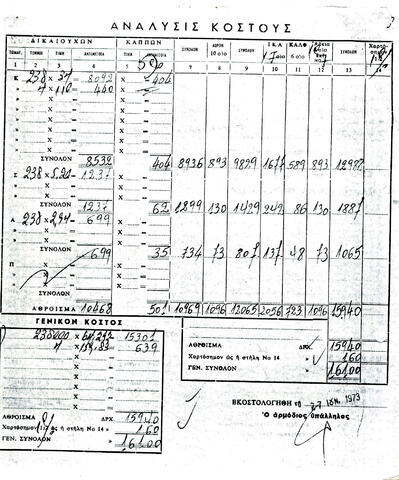 ΑΝΑΛΥΣΙΣ ΚΟΣΤΟΥΣ
ΔΙΚΑΙΟΥΧΩΝ ΚΑΠΠΩΝ ΣΥΝΟΛΟΝ ΔΩΡΟΝ 10 ο)ο ΣΥΝΟΛΟΝ ΙΚΑ 17 ο)ο ΚΑΛΦ 6 ο)ο ΣΥΝΟΛΟΝ
ΤΙΜΗ 5%
1 2 3 4 5 6 7 8 9 10 11 12 13 14
Κ 238 x 34 = 8092 x = 404
x 110 = 440 x =
ΣΥΝΟΛΟΝ 8532 404 8936 893 9829 1677 589 893 12988
Σ 238 x 5.20 = 1237 x =
ΣΥΝΟΛΟΝ 1237 62 1299 130 1429 242 86 130 1887
Α 238 x 2,94 = 699 x =
ΣΥΝΟΛΟΝ 699 35 734 73 807 137 48 73 1065
Π x = x =
ΣΥΝΟΛΟΝ
ΑΘΡΟΙΣΜΑ 10468 501 10969 1096 12065 2056 723 1096 15940
ΓΕΝΙΚΟΝ ΚΟΣΤΟΣ
15301
639
ΑΘΡΟΙΣΜΑ ΔΡΧ. 15940
Χαρτόσημον ώς ή στήλη Νο 14 » 160
ΓΕΝ. ΣΥΝΟΛΟΝ 16100
ΑΘΡΟΙΣΜΑ ΔΡΧ. 15940
Χαρτόσημον ώς ή στήλη Νο 14 » 160
ΓΕΝ. ΣΥΝΟΛΟΝ 16100
ΕΚΟΣΤΟΛΟΓΗΘΗ τῇ 27 ΙΑΝ. 1973
Ὁ ἁρμόδιος ὑπάλληλος